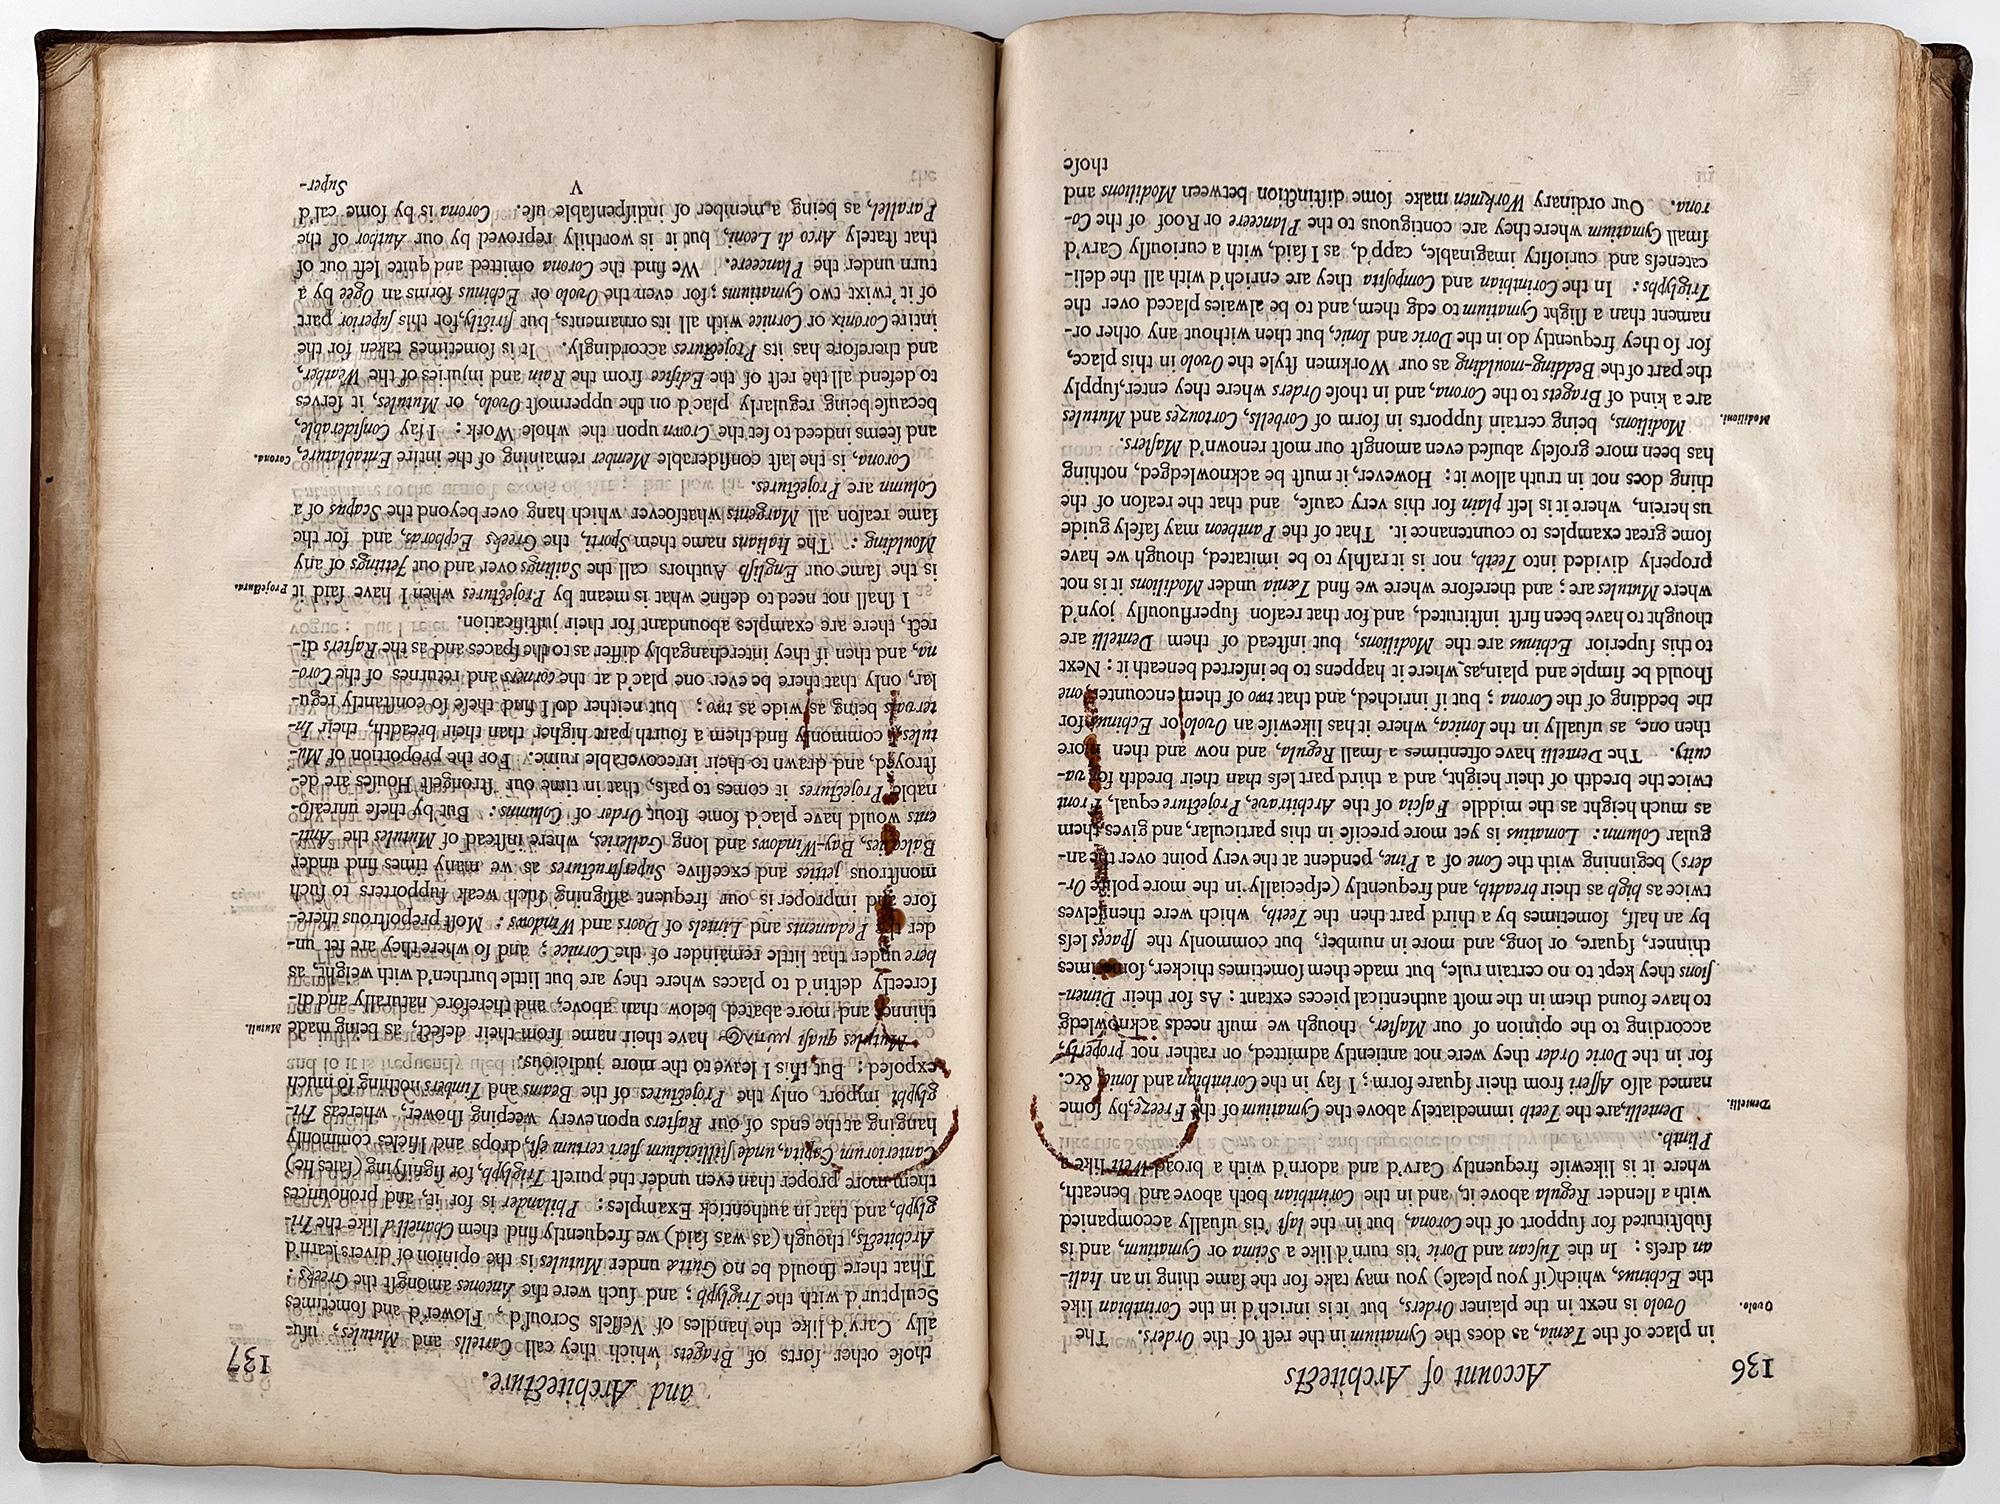 136
Account of Architects
in place of the Tænia, as does the Cymatium in the rest of the Orders. The
Ovolo.
Ovolo is next in the plainer Orders, but it is inrich'd in the Corinthian like
the Echinus, which (if you please) you may take for the same thing in an Itali-
an dress: In the Tuscan and Doric 'tis turn'd like a Scima or Cymatium, and is
substituted for support of the Corona, but in the last 'tis usually accompanied
with a slender Regula above it, and in the Corinthian both above and beneath,
where it is likewise frequently Carv'd and adorn'd with a broad Welt like a
Plinth.
Dentelli.
Dentelli, are the Teeth immediately above the Cymatium of the Freeze, by some
named also Asseri from their square form; I say in the Corinthian and Ionic, &c.
for in the Doric Order they were not antiently admitted, or rather not properly,
according to the opinion of our Master, though we must needs acknowledg
to have found them in the most authentical pieces extant: As for their Dimen-
sions they kept to no certain rule, but made them sometimes thicker, sometimes
thinner, square, or long, and more in number, but commonly the spaces less
by an half, sometimes by a third part then the Teeth, which were themselves
twice as high as their breadth, and frequently (especially in the more polite Or-
ders) beginning with the Cone of a Pine, pendent at the very point over the an-
gular Column: Lomatius is yet more precise in this particular, and gives them
as much height as the middle Fascia of the Architrave, Projecture equal, Front
twice the bredth of their height, and a third part less than their bredth for va-
cuity. The Dentelli have oftentimes a small Regula, and now and then more
then one, as usually in the Ionica, where it has likewise an Ovolo or Echinus for
the bedding of the Corona; but if inriched, and that two of them encounter, one
should be simple and plain, as where it happens to be inserted beneath it: Next
to this superior Echinus are the Modilions, but instead of them Dentelli are
thought to have been first instituted, and for that reason superfluously joyn'd
where Mutules are; and therefore where we find Tænia under Modilions it is not
properly divided into Teeth, nor is it rashly to be imitated, though we have
some great examples to countenance it. That of the Pantheon may safely guide
us herein, where it is left plain for this very cause, and that the reason of the
thing does not in truth allow it: However, it must be acknowledged, nothing
has been more grosely abused even amongst our most renown'd Masters.
Modilioni.
Modilions, being certain supports in form of Corbells, Cartouzes and Mutules
are a kind of Bragets to the Corona, and in those Orders where they enter, supply
the part of the Bedding-moulding as our Workmen style the Ovolo in this place,
for so they frequently do in the Doric and Ionic, but then without any other or-
nament than a slight Cymatium to edg them, and to be alwaies placed over the
Triglyphs: In the Corinthian and Composita they are enrich'd with all the deli-
cateness and curiosity imaginable, capp'd, as I said, with a curiously Carv'd
small Cymatium where they are contiguous to the Planceere or Roof of the Co-
rona. Our ordinary Workmen make some distinction between Modilions and
those
and Architecture.
137
those other sorts of Bragets which they call Cartells and Mutules, usu-
ally Carv'd like the handles of Vessels Scroul'd, Flower'd and sometimes
Sculptur'd with the Triglyph; and such were the Ancones amongst the Greeks:
That there should be no Guttæ under Mutules is the opinion of divers learn'd
Architects, though (as was said) we frequently find them Chanell'd like the Tri-
glyph, and that in authentick Examples: Philander is for it, and pronounces
them more proper than even under the purest Triglyph, for signifying (saies he)
Canteriorum Capita, unde stillicidium fieri certum est, drops and Isicles commonly
hanging at the ends of our Rafters upon every weeping shower, whereas Tri-
glyphs import only the Projectures of the Beams and Timbers nothing so much
exposed: But this I leave to the more judicious.
Mutuli.
Mutules quasi μυτιλΘ have their name from their defect, as being made
thinner and more abated below than above, and therefore naturally and di-
screetly destin'd to places where they are but little burthen'd with weight, as
here under that little remainder of the Cornice; and so where they are set un-
der the Pedaments and Lintels of Doors and Windows: Most prepostrous there-
fore and improper is our frequent assigning such weak supporters to such
monstrous jetties and excessive Superstructures as we many times find under
Balconies, Bay-Windows and long Galleries, where instead of Mutules the Anti-
ents would have plac'd some stout Order of Columns: But by these unreaso-
nable Projectures it comes to pass, that in time our strongest Houses are de-
stroyed, and drawn to their irrecoverable ruine. For the proportion of Mu-
tules I commonly find them a fourth part higher than their breadth, their In-
tervals being as wide as two; but neither do I find these so constantly regu-
lar, only that there be ever one plac'd at the corners and returnes of the Coro-
na, and then if they interchangably differ as to the spaces and as the Rafters di-
rect, there are examples aboundant for their justification.
Projectura.
I shall not need to define what is meant by Projectures when I have said it
is the same our English Authors call the Sailings over and out Jettings of any
Moulding: The Italians name them Sporti, the Greeks Ecphoras, and for the
same reason all Margents whatsoever which hang over beyond the Scapus of a
Column are Projectures.
Corona.
Corona, is the last considerable Member remaining of the intire Entablature,
and seems indeed to set the Crown upon the whole Work: I say Considerable,
because being regularly plac'd on the uppermost Ovolo, or Mutules, it serves
to defend all the rest of the Edifice from the Rain and injuries of the Weather,
and therefore has its Projectures accordingly. It is sometimes taken for the
intire Coronix or Cornice with all its ornaments, but strictly, for this superior part
of it 'twixt two Cymatiums; for even the Ovolo or Echinus forms an Ogee by a
turn under the Planceere. We find the Corona omitted and quite left out of
that stately Arco di Leoni, but it is worthily reproved by our Author of the
Parallel, as being a member of indispensable use. Corona is by some cal'd
V
Super-